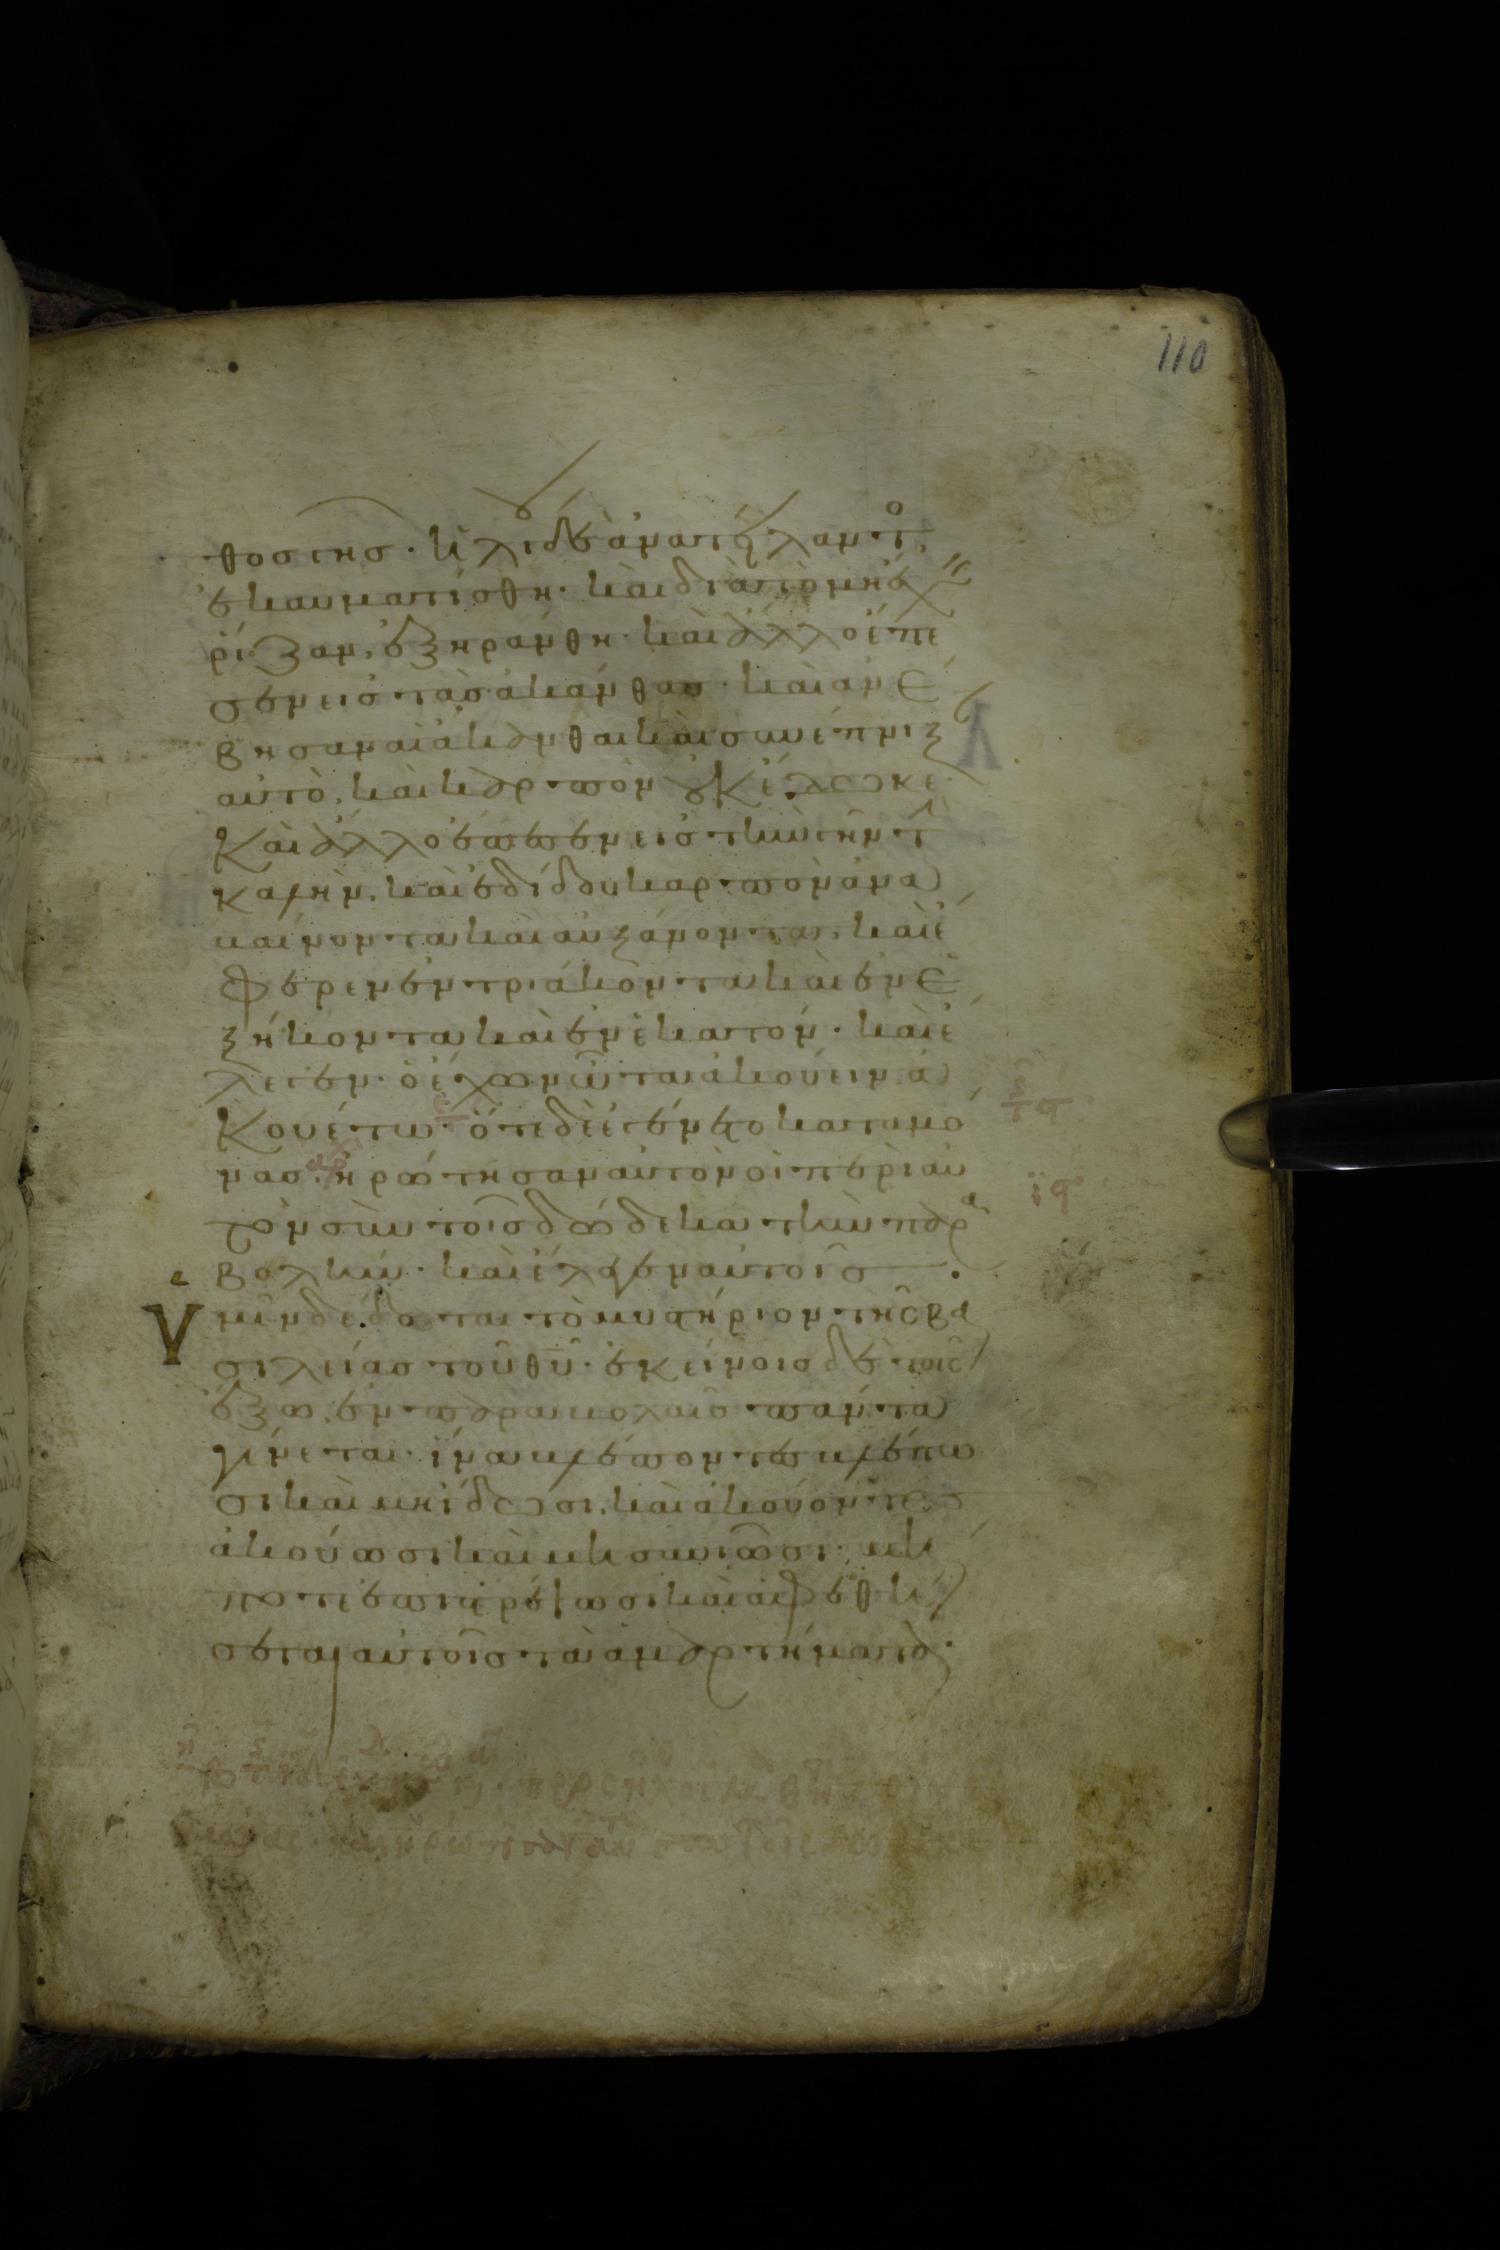 110
θος γῆς. ἡλίου δὲ ἀνατείλαντο
ἐκαυματίσθη. καὶ διὰ τὸ μὴ ἔχειν
ῥίζαν, ἐξηράνθη. καὶ ἄλλο ἔπε
σεν εἰς τὰς ἀκάνθας. καὶ ἀνέ
βησαν αἱ ἄκανθαι καὶ συνέπνιξ
αὐτὸ, καὶ καρπὸν οὐκ ἔδωκε.
Καὶ ἄλλο ἔπεσεν εἰς τὴν γῆν τὴν
καλὴν, καὶ ἐδίδου καρπὸν ἀνα
βαίνοντα καὶ αὐξάνοντα, καὶ ἔ
φερεν ἐν τριάκοντα καὶ ἐν ἑ
ξήκοντα καὶ ἐν ἑκατόν. καὶ ἔ
λεγεν. ὁ ἔχων ὦτα ἀκούειν ἀ
κουέτω. ὅτε δὲ ἐγένετο καταμό
νας. ἠρώτησαν αὐτὸν οἱ περὶ αὐ
τὸν σὺν τοῖς δώδεκα τὴν παρα
βολήν. καὶ ἔλεγεν αὐτοῖς
Ὑμῖν δέδοται τὸ μυστήριον τῆς βα
σιλείας τοῦ θυ. ἐκείνοις δὲ τοῖς
ἔξω, ἐν παραβολαῖς πάντα
γίνεται. ἵνα βλέποντες βλέπω
σι καὶ μὴ ἴδωσι, καὶ ἀκούοντες
ἀκούωσι καὶ μὴ συνιῶσι. μή
ποτε ἐπιστρέψωσι καὶ ἀφεθή
σεται αὐτοῖς τὰ ἁμαρτήματα.